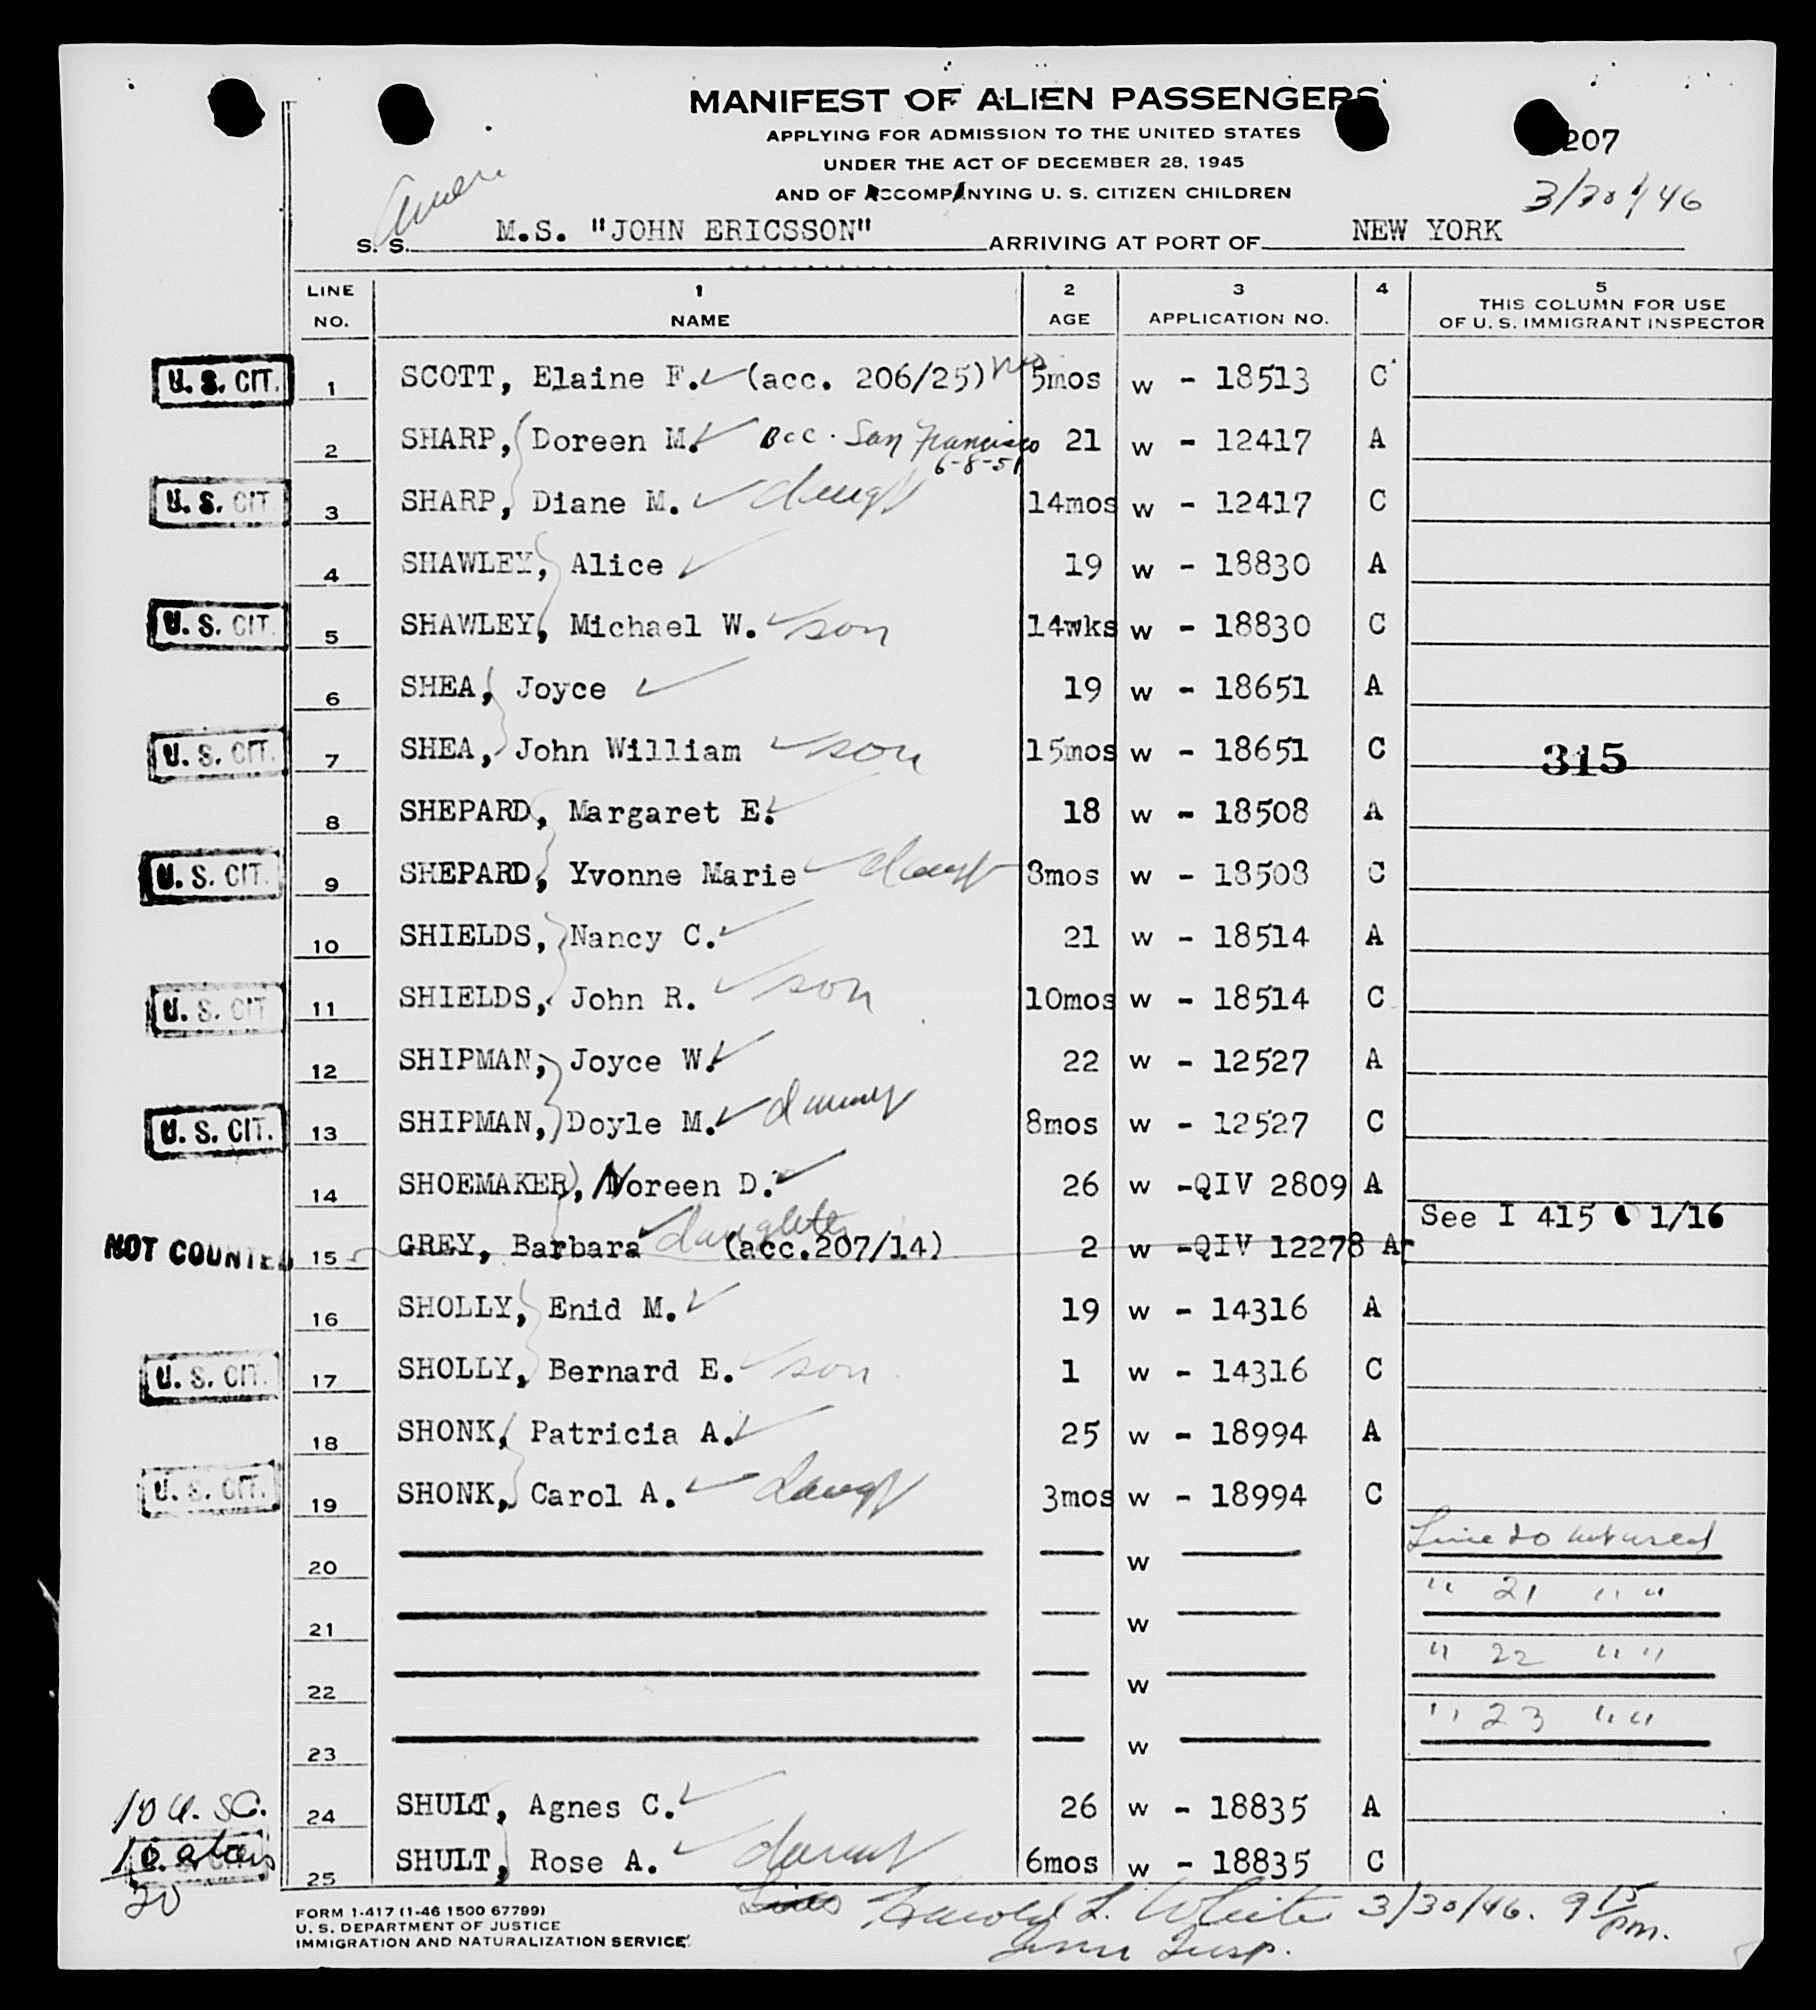 MANIFEST OF ALIEN PASSENGERS
APPLYING FOR ADMISSION TO THE UNITED STATES
UNDER THE ACT OF DECEMBER 28, 1945
AND OF ACCOMPANYING U. S. CITIZEN CHILDREN
207
3/30/46
Amer
S. S. M.S. "JOHN ERICSSON" ARRIVING AT PORT OF NEW YORK
LINE NO. 1 NAME 2 AGE 3 APPLICATION NO. 4 5 THIS COLUMN FOR USE OF U. S. IMMIGRANT INSPECTOR
U. S. CIT. 1 SCOTT, Elaine F. (acc. 206/25) 5mos w - 18513 C
2 SHARP, Doreen M. Bcc. San Francisco 6-8-51 21 w - 12417 A
U. S. CIT. 3 SHARP, Diane M. daugh 14mos w - 12417 C
4 SHAWLEY, Alice 19 w - 18830 A
U. S. CIT. 5 SHAWLEY, Michael W. son 14wks w - 18830 C
6 SHEA, Joyce 19 w - 18651 A
U. S. CIT. 7 SHEA, John William son 15mos w - 18651 C 315
8 SHEPARD, Margaret E. 18 w - 18508 A
U. S. CIT. 9 SHEPARD, Yvonne Marie daugh 8mos w - 18508 C
10 SHIELDS, Nancy C. 21 w - 18514 A
U. S. CIT 11 SHIELDS, John R. son 10mos w - 18514 C
12 SHIPMAN, Joyce W. 22 w - 12527 A
U. S. CIT. 13 SHIPMAN, Doyle M. 8mos w - 12527 C
14 SHOEMAKER, Noreen D. 26 w -QIV 2809 A
See I 415 1/16
NOT COUNTED 15 GREY, Barbara daughter (acc.207/14) 2 w -QIV 12278 A
16 SHOLLY, Enid M. 19 w - 14316 A
U. S. CIT. 17 SHOLLY, Bernard E. son 1 w - 14316 C
18 SHONK, Patricia A. 25 w - 18994 A
U. S. CIT. 19 SHONK, Carol A. Daugh 3mos w - 18994 C
20 w Line 20 not used
21 w " 21 " "
22 w " 22 " "
23 w " 23 " "
10 U. S. C. 24 SHULT, Agnes C. 26 w - 18835 A
10 aliens 25 SHULT, Rose A. 6mos w - 18835 C
20
FORM 1-417 (1-46 1500 67799)
U. S. DEPARTMENT OF JUSTICE
IMMIGRATION AND NATURALIZATION SERVICE
Harold L. White 3/30/46. 9 15 pm.
Imm Insp.